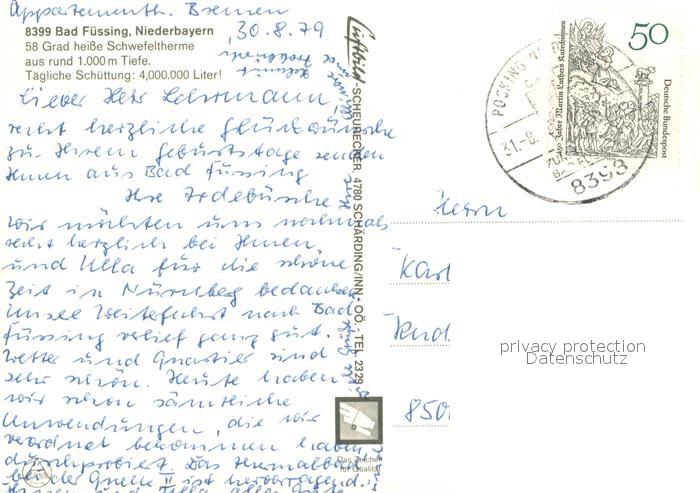 Appartementh. Bremen
30.8.79
8399 Bad Füssing, Niederbayern
58 Grad heiße Schwefeltherme
aus rund 1.000 m Tiefe.
Tägliche Schüttung: 4,000.000 Liter!
Lieber Herr Lehrmann,
recht herzliche Glückwünsche
zu Ihrem Geburtstage senden
Ihnen aus Bad Füssing
Ihre
wir möchten uns nochmals
recht herzlich bei Ihnen
und Ulla für die schöne
Zeit in Nürnberg bedanken.
Unsere Weiterfahrt nach Bad
Füssing verlief ganz gut.
Wetter und Quartier sind
sehr schön. Heute haben
wir schon sämtliche
Anwendungen, die wir
verordnet bekommen haben,
durchprobiert. Das Thermalbad
bei der Quelle II ist hervorragend.
Ihnen und Ulla alles Gute
Luftbild-SCHEURECKER, 4780 SCHÄRDING/INN • OÖ., TEL. 2329
Das Zeichen
für Qualität
POCKING
31.-8.
8398
50
Deutsche Bundespost
450 Jahre Martin Luthers Katechismen
Herrn
Karl
850
privacy protection
Datenschutz